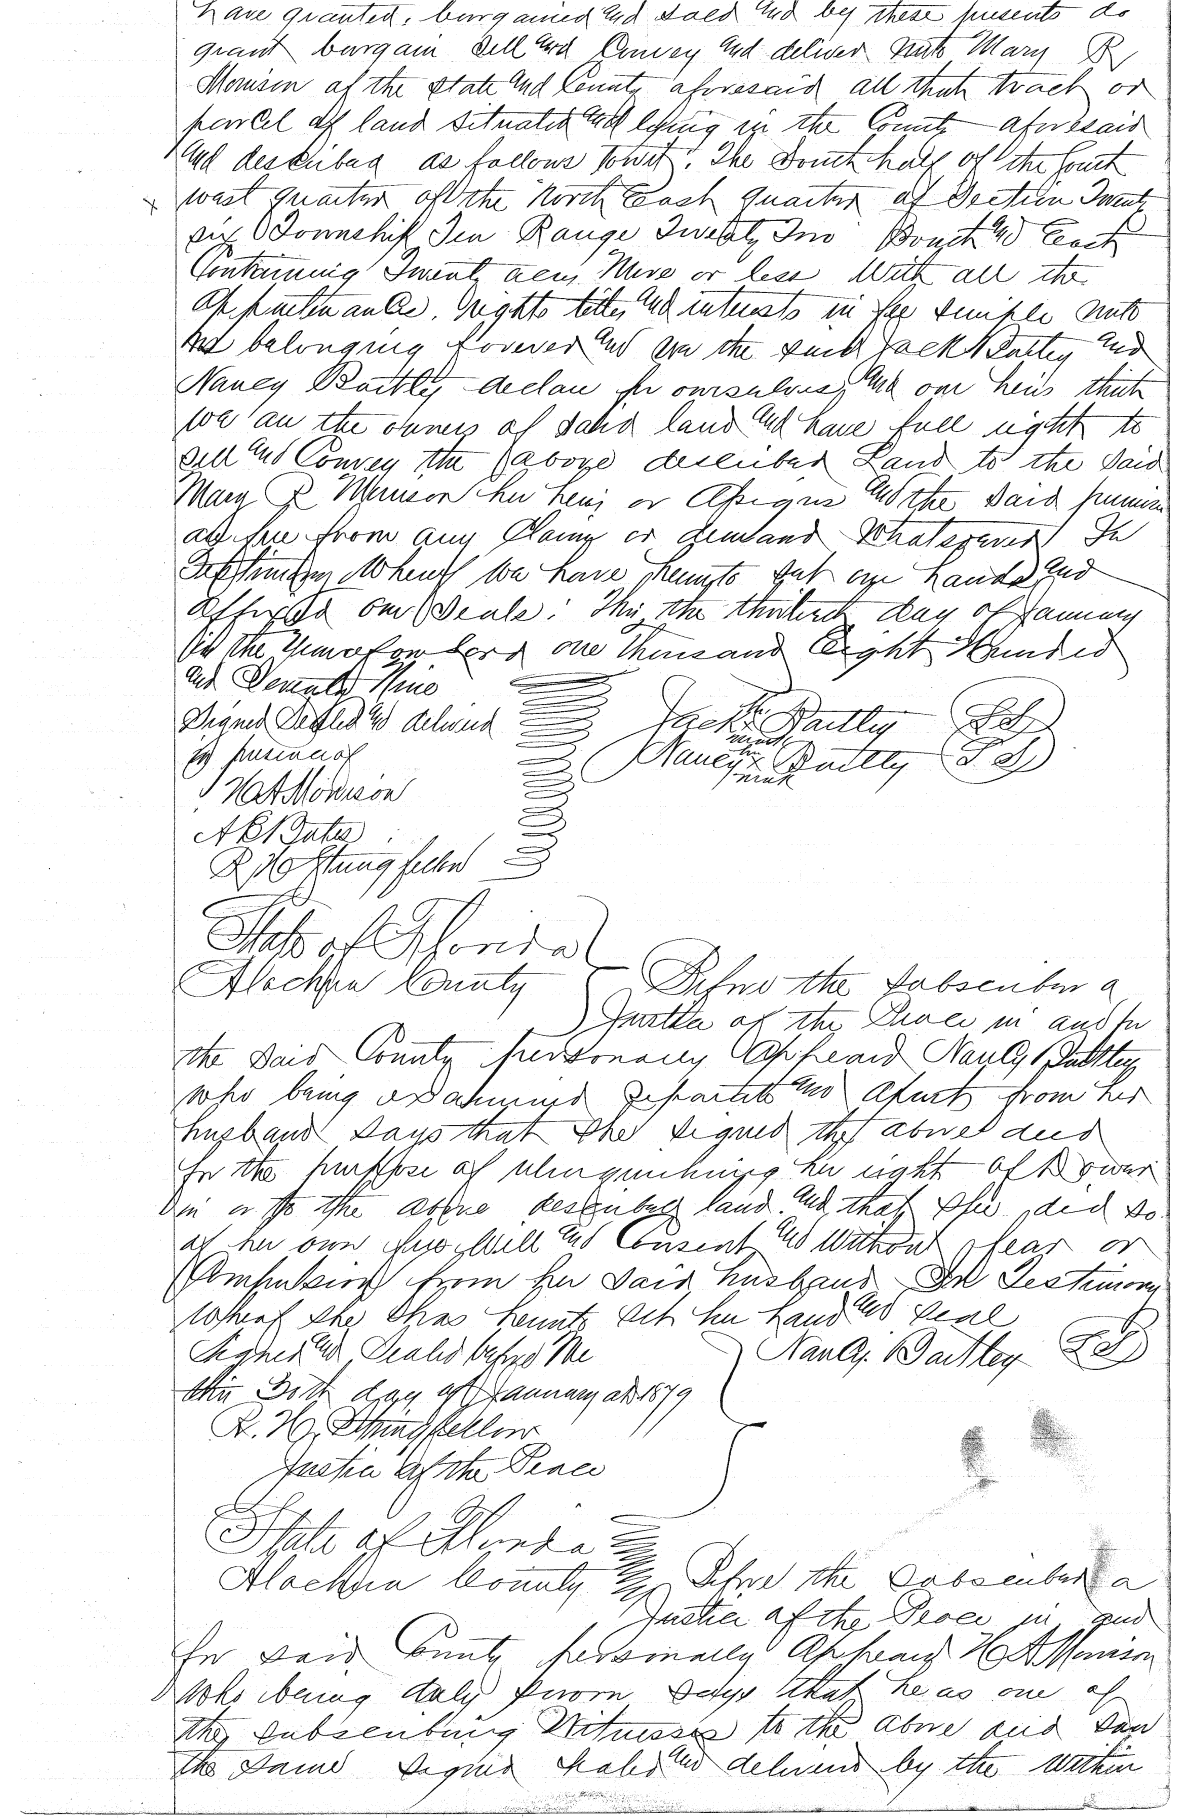 have granted, bargained and sold and by these presents do
grant bargain sell and Convey and deliver unto Mary R
Morrison of the state and County aforesaid all that tract or
parcel of land situated and lying in the County aforesaid
and described as follows towit. The South half of the South
west quarter of the North East quarter of Section Twenty
x
six Township Ten Range Twenty Two South and East
Containing Twenty acres More or less With all the
appurtenances, rights titles and interests in fee simple unto
belonging forever and we the said Jack Bartley and
Nancy Bartley declare for ourselves, and our heirs that
we are the owners of said land and have full right to
sell and Convey the above described Land to the said
Mary R Morrison her heirs or Assigns and the said premises
are free from any Claim or demand Whatsoever In
Testimony Whereof we have hereunto set our hands and
affixed our Seals: This the thirtieth day of January
in the Year of our Lord one Thousand Eight Hundred
and Seventy Nine
Signed Sealed and delivered
in presence of
Jack his x mark Bartley LS
Nancy her x mark Bartley LS
H A Morrison
A E Bates
R. H. Stringfellow
State of Florida
Alachua County Before the subscriber a
Justice of the Peace in and for
the said County personally Appeared Nancy Bartley
who being examined seperate and apart from her
husband says that she signed the above deed
for the purpose of relinquishing her right of Dower
in or to the above described land and that she did so
of her own free Will and Consent and Without fear or
Compulsion from her said husband In Testimony
Whereof she has hereunto set her hand and seal
Signed and Sealed before Me
Nancy Bartley LS
this 30th day of January AD 1879
R. H. Stringfellow
Justice of the Peace
State of Florida
Alachua County Before the subscriber a
Justice of the Peace in and
for said County personally Appeared H A Morrison
who being duly sworn says that he as one of
the subscribing Witnesses to the above deed saw
the same signed sealed and delivered by the within